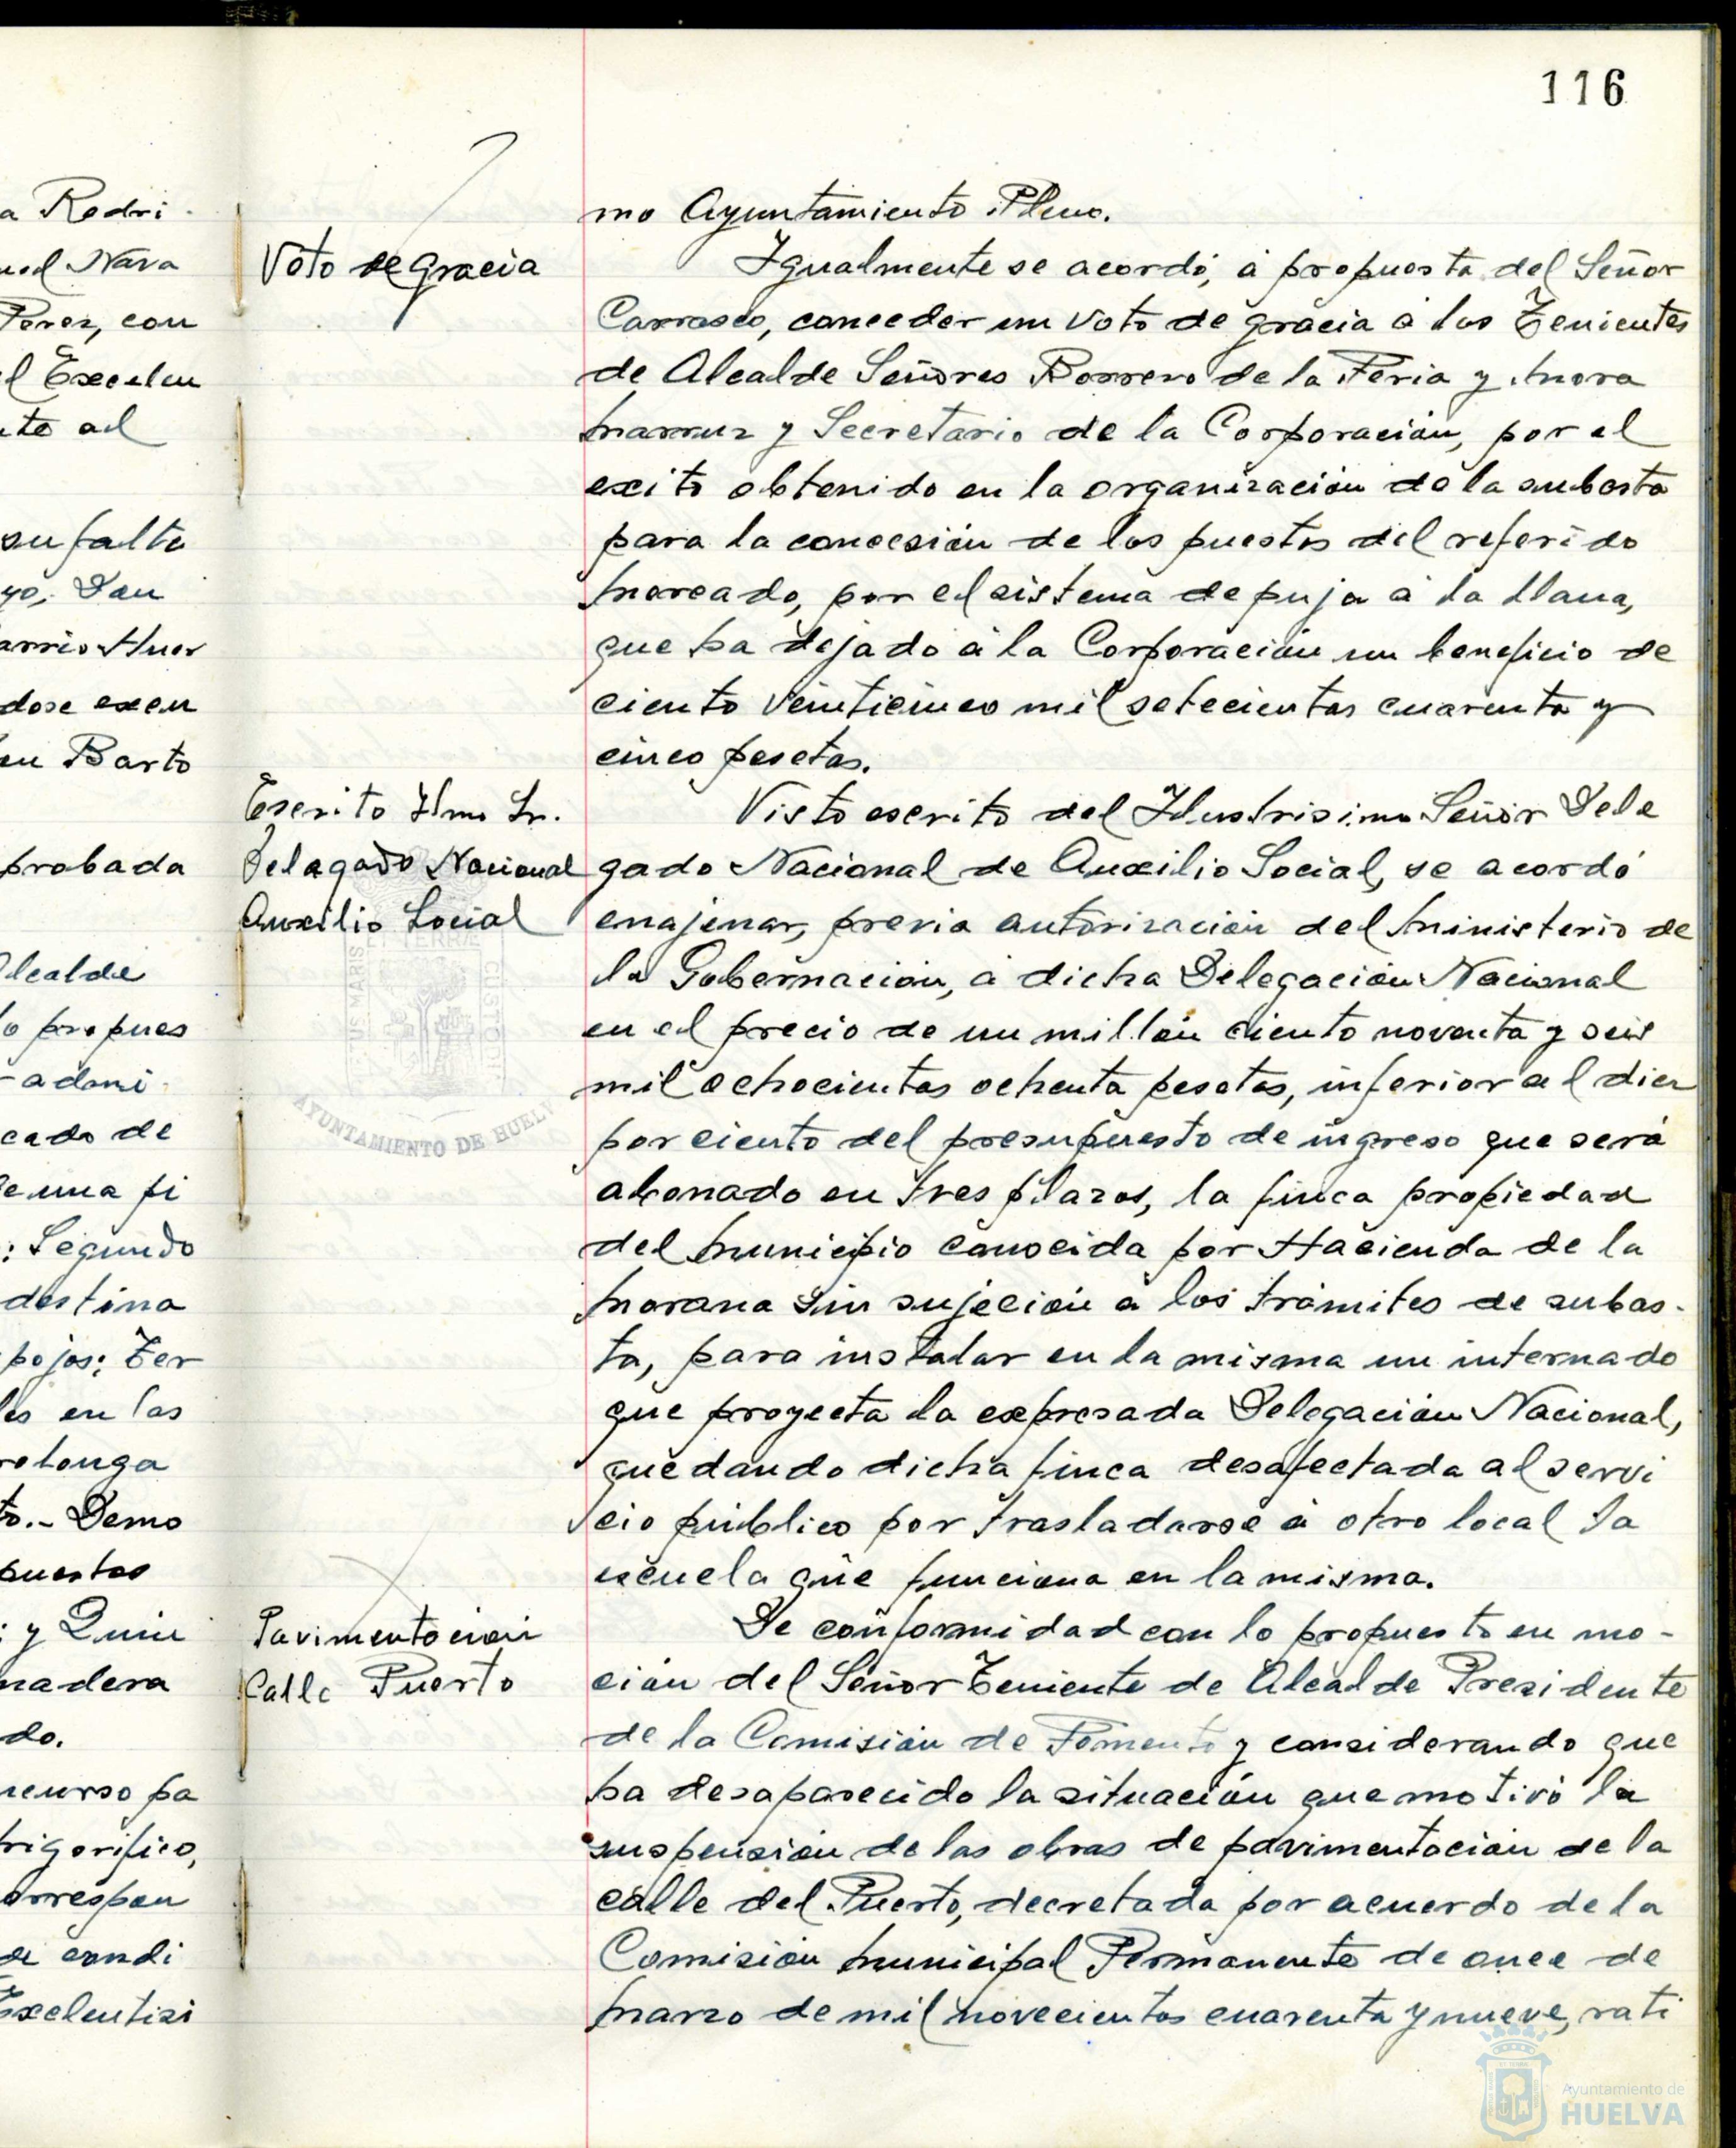 116
a Rodri
uel Nava
Perez, con
l Excelen
te al
su falta
yo, Don
arrio Huer
dose exen
en Barto
probada
lcalde
lo propues
- adori
cado de
e una fi
: Segundo
destina
pojos; Ter
les en las
rolonga
to.- Demo
puestos
i y Quin
madera
do.
ncurso pa
frigorifico,
orrespon
se condi
Excelentisi
Voto de gracia
mo Ayuntamiento Pleno.
Igualmente se acordó, á propuesta del Señor
Carrasco, conceder un voto de gracia á los Tenientes
de Alcalde Señores Borrero de la Feria y Mora
Narruz y Secretario de la Corporación, por el
exito obtenido en la organización de la subasta
para la concesión de los puestos del referido
Mercado, por el sistema de puja á la llana,
que ha dejado á la Corporación un beneficio de
ciento veinticinco mil setecientas cuarenta y
cinco pesetas.
Escrito Ilmo Sr.
Delagado Nacional
Auxilio Social
Visto escrito del Ilustrisimo Señor Dele
gado Nacional de Auxilio Social, se acordó
enajenar, previa autorización del Ministerio de
la Gobernación, á dicha Delegación Nacional
en el precio de un millón ciento noventa y seis
mil ochocientas ochenta pesetas, inferior al diez
por ciento del presupuesto de ingreso que será
abonado en tres plazos, la finca propiedad
del Municipio conocida por Hacienda de la
Morana sin sujeción á los trámites de subas-
ta, para instalar en la misma un internado
que proyecta la expresada Delegación Nacional,
quedando dicha finca desafectada al servi
cio público por trasladarse á otro local la
escuela que funciona en la misma.
Pavimentación
Calle Puerto
De conformidad con lo propuesto en mo-
ción del Señor Teniente de Alcalde Presidente
de la Comisión de Fomento y considerando que
ha desaparecido la situación que motivó la
suspensión de las obras de pavimentación de la
calle del Puerto, decretada por acuerdo de la
Comisión Municipal Permanente de once de
Marzo de mil novecientos cuarenta y nueve, rati
US MARIS
ET TERRÆ
CUSTODI
AYUNTAMIENTO DE HUELV
Ayuntamiento de
HUELVA